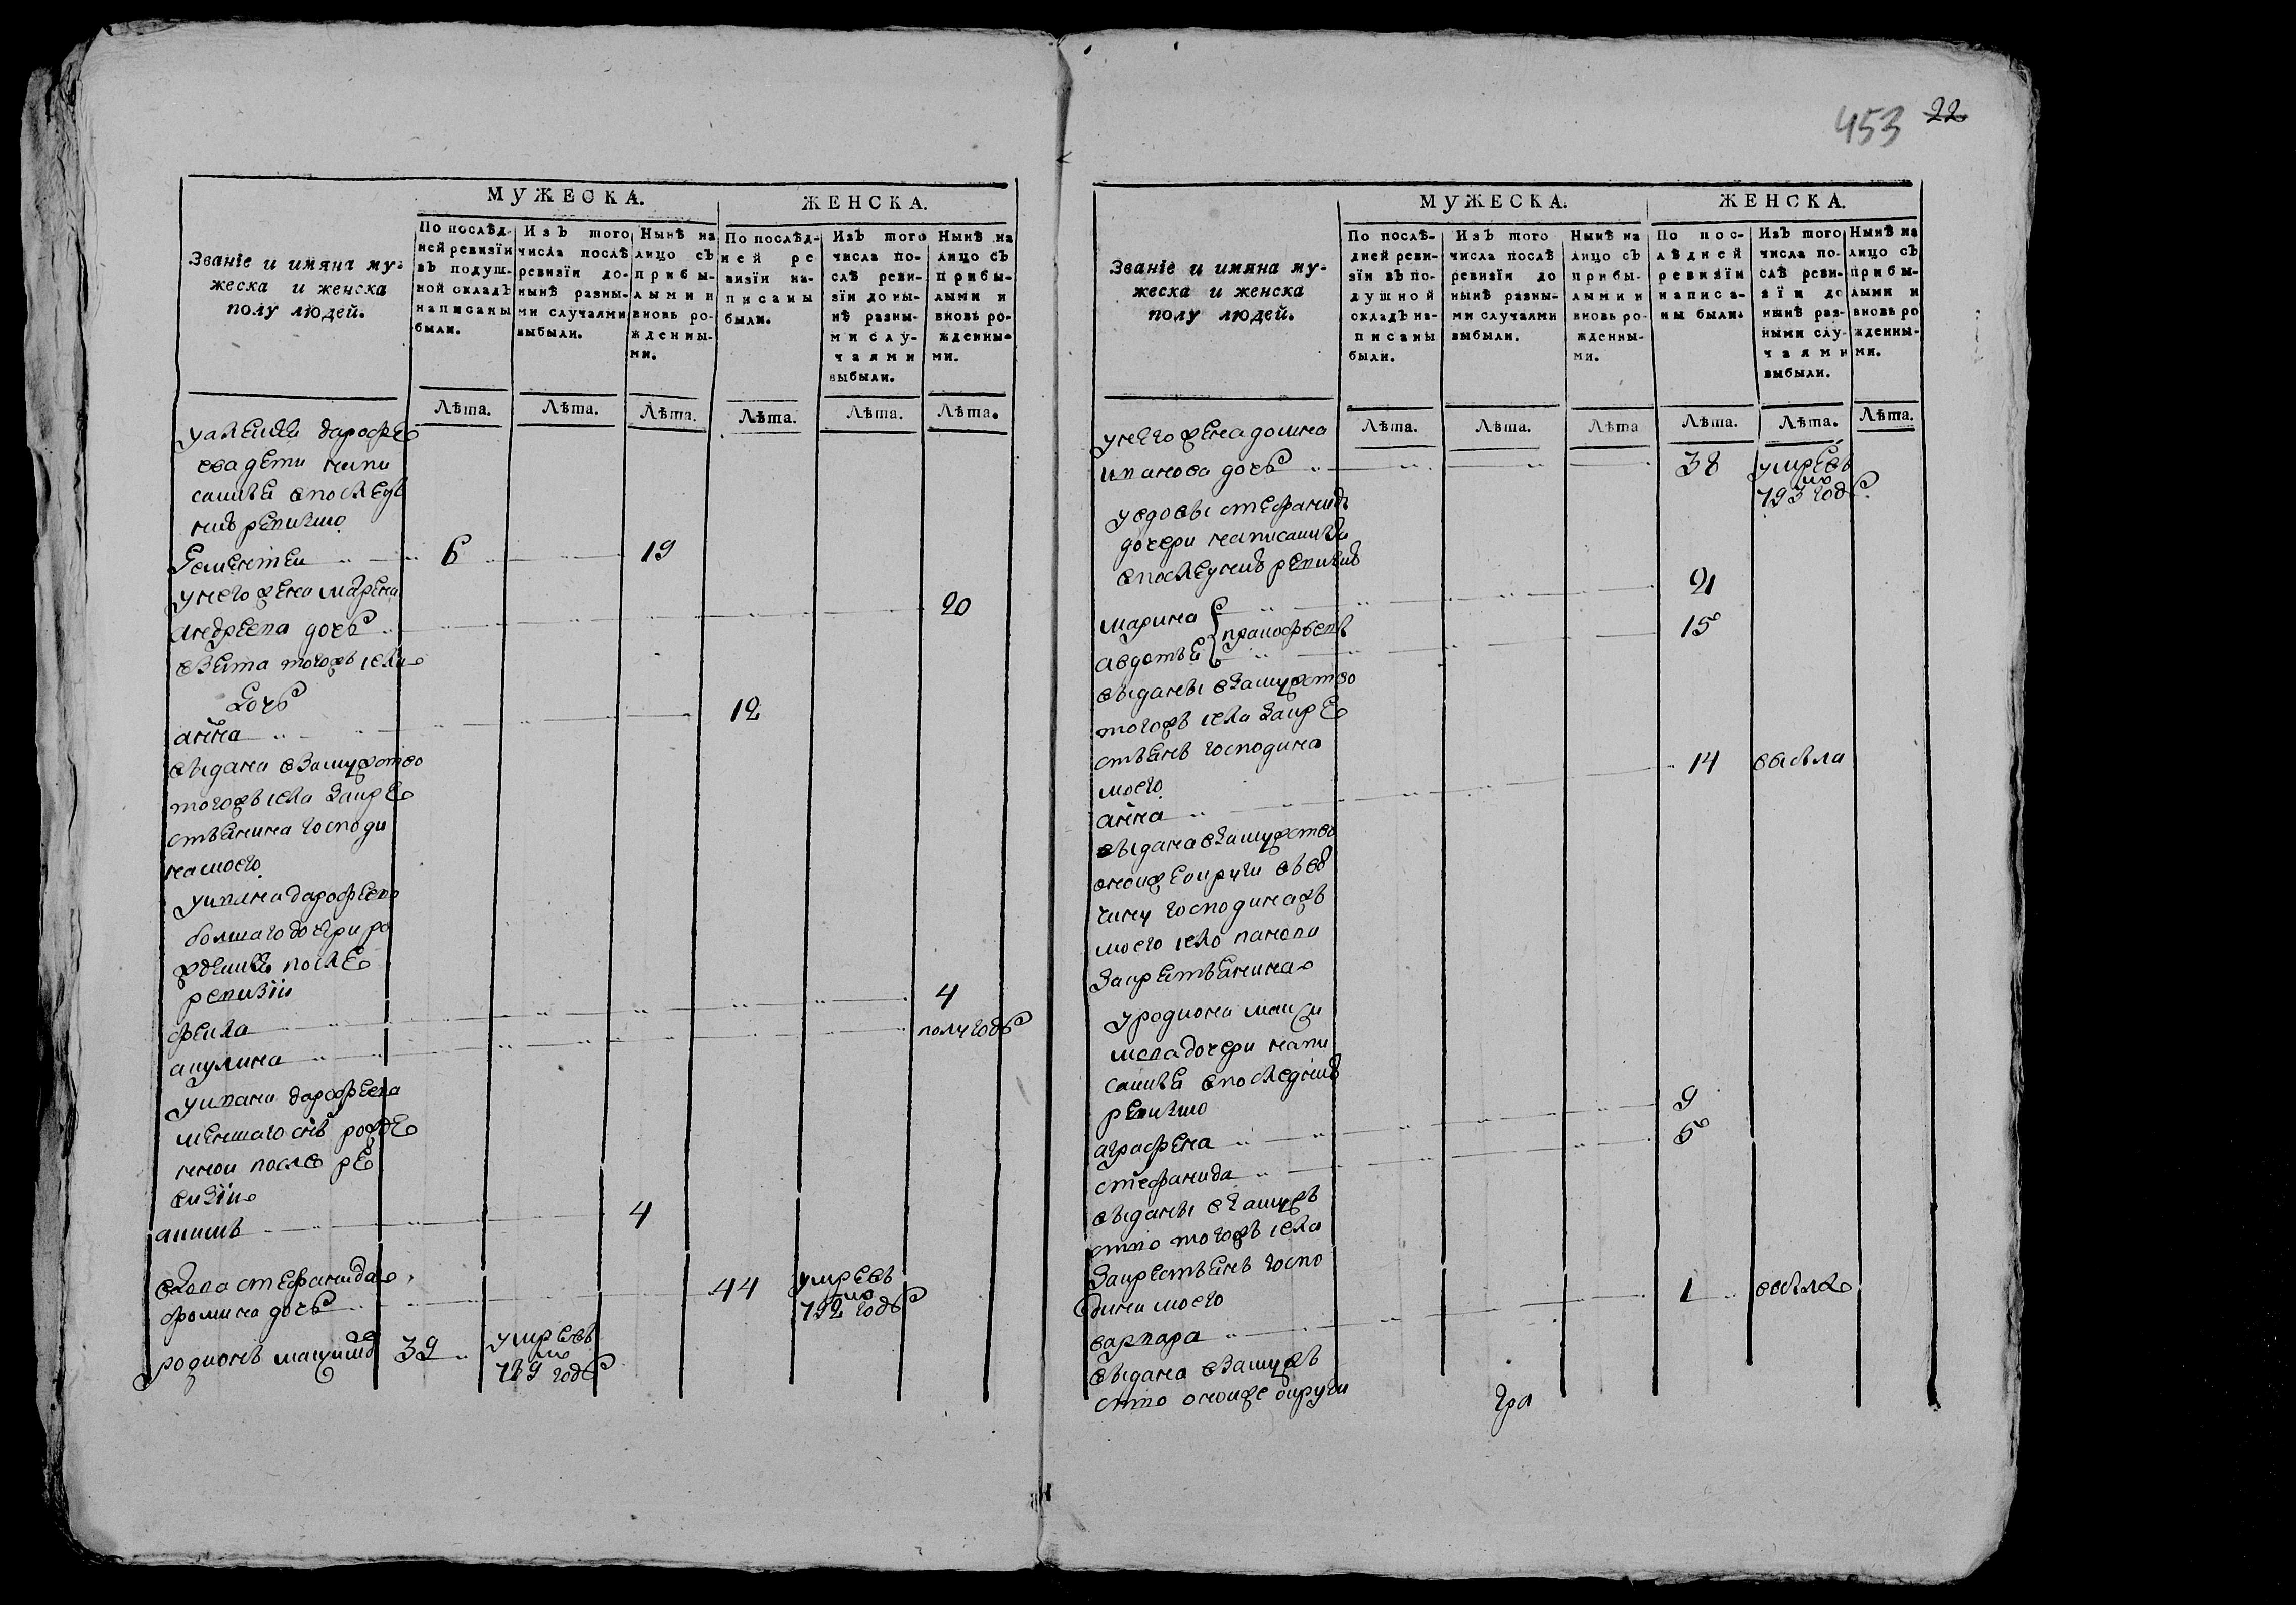 453 22
МУЖЕСКА. ЖЕНСКА.
Званіе и имяна му-
жеска и женска
полу людей.
По послѣд-
ней ревизіи
въ подуш-
ной окладъ
написаны
были.
Изъ того
числа послѣ
ревизіи до-
нынѣ разны-
ми случаями
выбыли.
Нынѣ на
лицо съ
прибы-
лыми и
вновь ро-
жденны-
ми.
По послѣд-
ней ре
визіи на-
писаны
были.
Изъ того
числа по-
слѣ реви-
зіи до ны-
нѣ разны-
ми слу-
чаями
выбыли.
Нынѣ на
лицо съ
прибы-
лыми и
вновь ро-
жденны-
ми.
Лѣта. Лѣта. Лѣта. Лѣта. Лѣта. Лѣта.
дарофее
ва дети напи
санные впоследъ
нюю ревизию
6 19
у него жена марена
андреева дочь 20
взята тогожъ села
дочь
анна 12
выдана взамужство
тогожъ села за кре
стьянина господи
на моего
у ивана дарофеева
болшаго дочери ро
жденные после
ревизіи
фекла 4
акулина полугоду
у ивана дарофеева
меншаго сынъ рожде
нной после ре
визіи
акимъ 4
вдова стефанида
фомина дочь 44 умре въ
792 году
родионъ 39 умре въ
789 году
МУЖЕСКА. ЖЕНСКА.
Званіе и имяна му-
жеска и женска
полу людей.
По послѣ-
дней реви-
зіи въ по-
душной
окладъ на-
писаны
были.
Изъ того
числа послѣ
ревизіи до
нынѣ разны-
ми случаями
выбыли.
Нынѣ на
лицо съ
прибы-
лыми и
вновь ро-
жденны-
ми.
По пос-
лѣдней
ревизіи
написа-
ны были.
Изъ того
числа по-
слѣ реви-
зіи до
нынѣ раз-
ными слу-
чаями
выбыли.
Нынѣ на
лицо съ
прибы-
лыми и
вновь ро
жденны-
ми.
Лѣта. Лѣта. Лѣта Лѣта. Лѣта. Лѣта.
у него жена домна
иванова дочь 38 умре въ
793 году
у вдовы стефаниды
дочери написанные
в последнюю ревизию
марина 21
авдотья 15
выданы взамужство
тогожъ села за кре
стьянъ господина
моего
анна 14 выбыла
выдана взамужство
оной же округи въ вот
чину господина жъ
моего село
за крестьянина
у родиона макси
мова дочери напи
санные в последнюю
ревизию
аграфена 9
стефанида 5
выданы взамуж
ство тогожъ села
за крестьянъ госпо
дина моего
варвара 1 выбыла
выдана взамуж
ство оной же округи